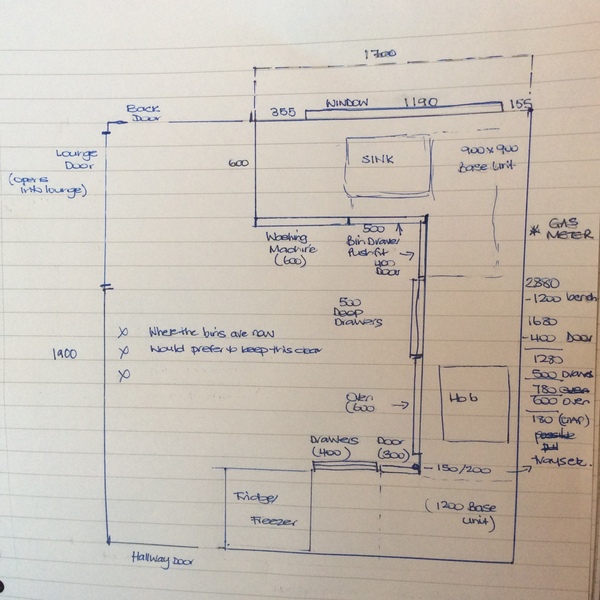 1700
Back
Door
355
WINDOW 1190
155
Lounge
Door
(opens
into lounge)
600
SINK
900 x 900
Base Unit
Washing
Machine
(600)
500
Bin Drawer
Push fit
400
Door
* GAS
METER
500
Deep
Drawers
2880
-1200 bench
1680
-400 Door
1280
500 Draws
780
600 oven
180 (GAP)
possible
Pull
traysek.
X Where the bins are now
X Would prefer to keep this clear
X
1900
Oven
(600
Hob
Drawers
(400)
Door
(300)
-150/200
Fridge/
Freezer
(1200 Base
Unit)
Hallway Door